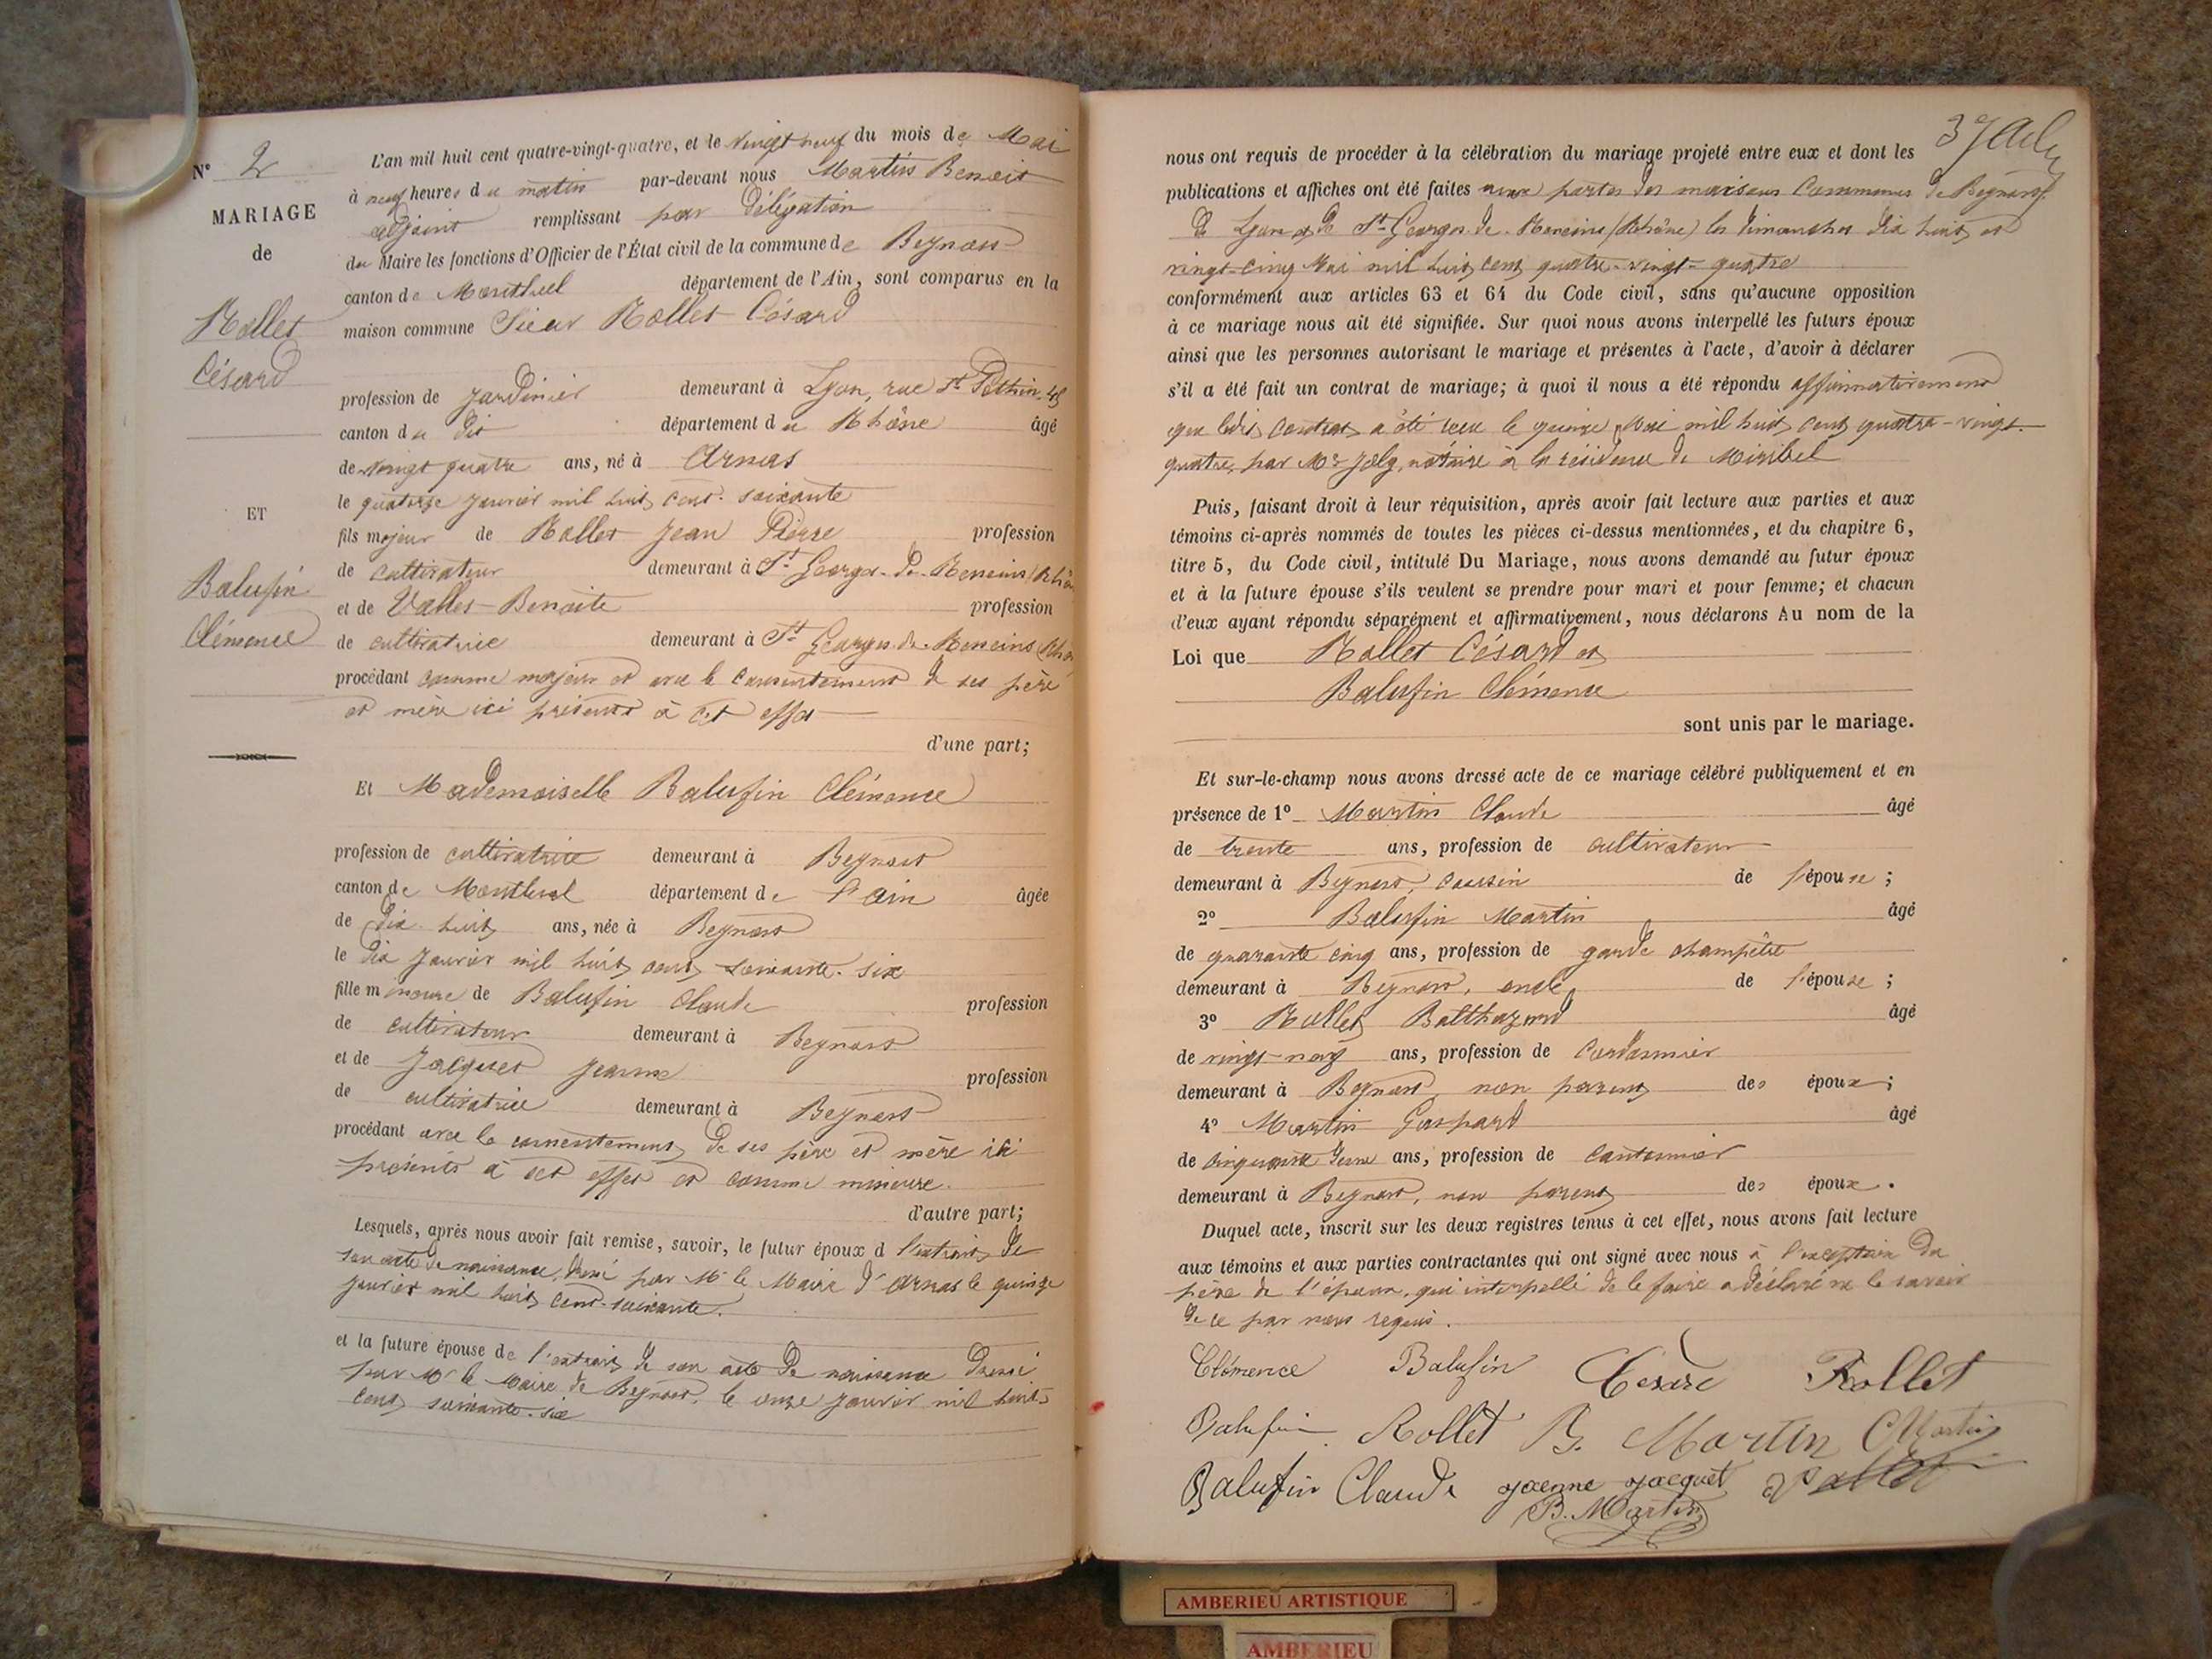 N° 2
MARIAGE
de
Rollet
Césard
ET
Balufin
Clémence
L'an mil huit cent quatre-vingt-quatre, et le vingt neuf du mois de Mai
à neuf heures du matin par-devant nous Martin Benoit
adjoint remplissant par délégation
du Maire les fonctions d'Officier de l'État civil de la commune de Beynost
canton de Montluel département de l'Ain, sont comparus en la
maison commune Sieur Rollet Césard
profession de jardinier demeurant à Lyon, rue St Pothin, 45
canton du dit département du Rhône âgé
de vingt quatre ans, né à Arnas
le quatorze janvier mil huit cent soixante
fils majeur de Rollet Jean Pierre profession
de cultivateur demeurant à St Georges-de-Reneins (Rhô
et de Vallet Benoite profession
de cultivatrice demeurant à St Georges-de-Reneins (Rhô
procédant comme majeur et avec le consentement de ses père
et mère ici présents à cet effet
d'une part;
Et Mademoiselle Balufin Clémence
profession de cultivatrice demeurant à Beynost
canton de Montluel département de l'Ain âgée
de dix huit ans, née à Beynost
le dix janvier mil huit cent soixante-six
fille mineure de Balufin Claude profession
de cultivateur demeurant à Beynost
et de Jacquet Jeanne profession
de cultivatrice demeurant à Beynost
procédant avec le consentement de ses père et mère ici
présents à cet effet et comme mineure.
d'autre part;
Lesquels, après nous avoir fait remise, savoir, le futur époux d l'extrait de
son acte de naissance, dressé par Mr le Maire d'Arnas le quinze
janvier mil huit cent-soixante.
et la future épouse de l'extrait de son acte de naissance dressé
par Mr le Maire de Beynost, le onze janvier mil huit
cent soixante-six
nous ont requis de procéder à la célébration du mariage projeté entre eux et dont les
publications et affiches ont été faites aux portes des maisons communes de Beynost,
de Lyon et de St-Georges-de-Reneins (Rhône) les dimanches dix huit et
vingt-cinq Mai mil huit cent quatre-vingt-quatre
conformément aux articles 63 et 64 du Code civil, sans qu'aucune opposition
à ce mariage nous ait été signifiée. Sur quoi nous avons interpellé les futurs époux
ainsi que les personnes autorisant le mariage et présentes à l'acte, d'avoir à déclarer
s'il a été fait un contrat de mariage; à quoi il nous a été répondu affirmativement
que ledit contrat a été reçu le quinze Mai mil huit cent quatre-vingt-
quatre, par Me notaire à la résidence de Miribel
Puis, faisant droit à leur réquisition, après avoir fait lecture aux parties et aux
témoins ci-après nommés de toutes les pièces ci-dessus mentionnées, et du chapitre 6,
titre 5, du Code civil, intitulé Du Mariage, nous avons demandé au futur époux
et à la future épouse s'ils veulent se prendre pour mari et pour femme; et chacun
d'eux ayant répondu séparément et affirmativement, nous déclarons Au nom de la
Loi que Rollet Césard et
Balufin Clémence
sont unis par le mariage.
Et sur-le-champ nous avons dressé acte de ce mariage célébré publiquement et en
présence de 1° Martin Claude âgé
de trente ans, profession de cultivateur
demeurant à Beynost, cousin de l'épouse;
2° Balufin Martin âgé
de quarante cinq ans, profession de garde champêtre
demeurant à Beynost, oncle de l'épouse;
3° Rollet Balthazard âgé
de vingt-neuf ans, profession de Cordonnier
demeurant à Beynost, non parent des époux;
4° Martin Gaspard âgé
de cinquante deux ans, profession de cantonnier
demeurant à Beynost, non parent des époux.
Duquel acte, inscrit sur les deux registres tenus à cet effet, nous avons fait lecture
aux témoins et aux parties contractantes qui ont signé avec nous à l'exception du
père de l'époux, qui interpellé de le faire a déclaré ne le savoir
de ce par nous requis.
Clémence Balufin Césard Rollet
Balufin Rollet B. Martin C Martin
Balufin Claude Jaenne Jacquet Vallet
B. Martin
AMBERIEU ARTISTIQUE
AMBERIEU